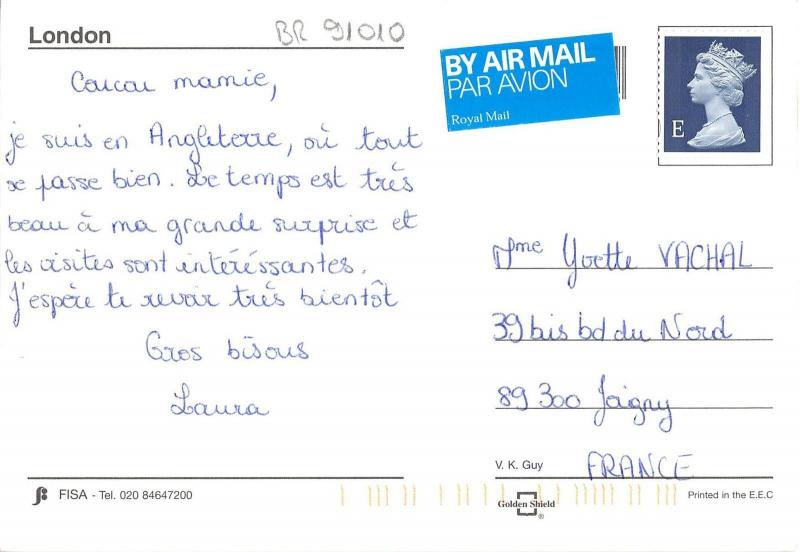 London
BR 91010
Coucou mamie,
je suis en Angleterre, où tout
se passe bien. Le temps est très
beau à ma grande surprise et
les visites sont intéréssantes.
J'espère te revoir très bientôt
Gros bisous
Laura
FISA - Tel. 020 84647200
BY AIR MAIL
PAR AVION
Royal Mail
E
Mme Yvette VACHAL
39 bis bd du Nord
89 300 Joigny
V. K. Guy
FRANCE
Golden Shield
®
Printed in the E.E.C